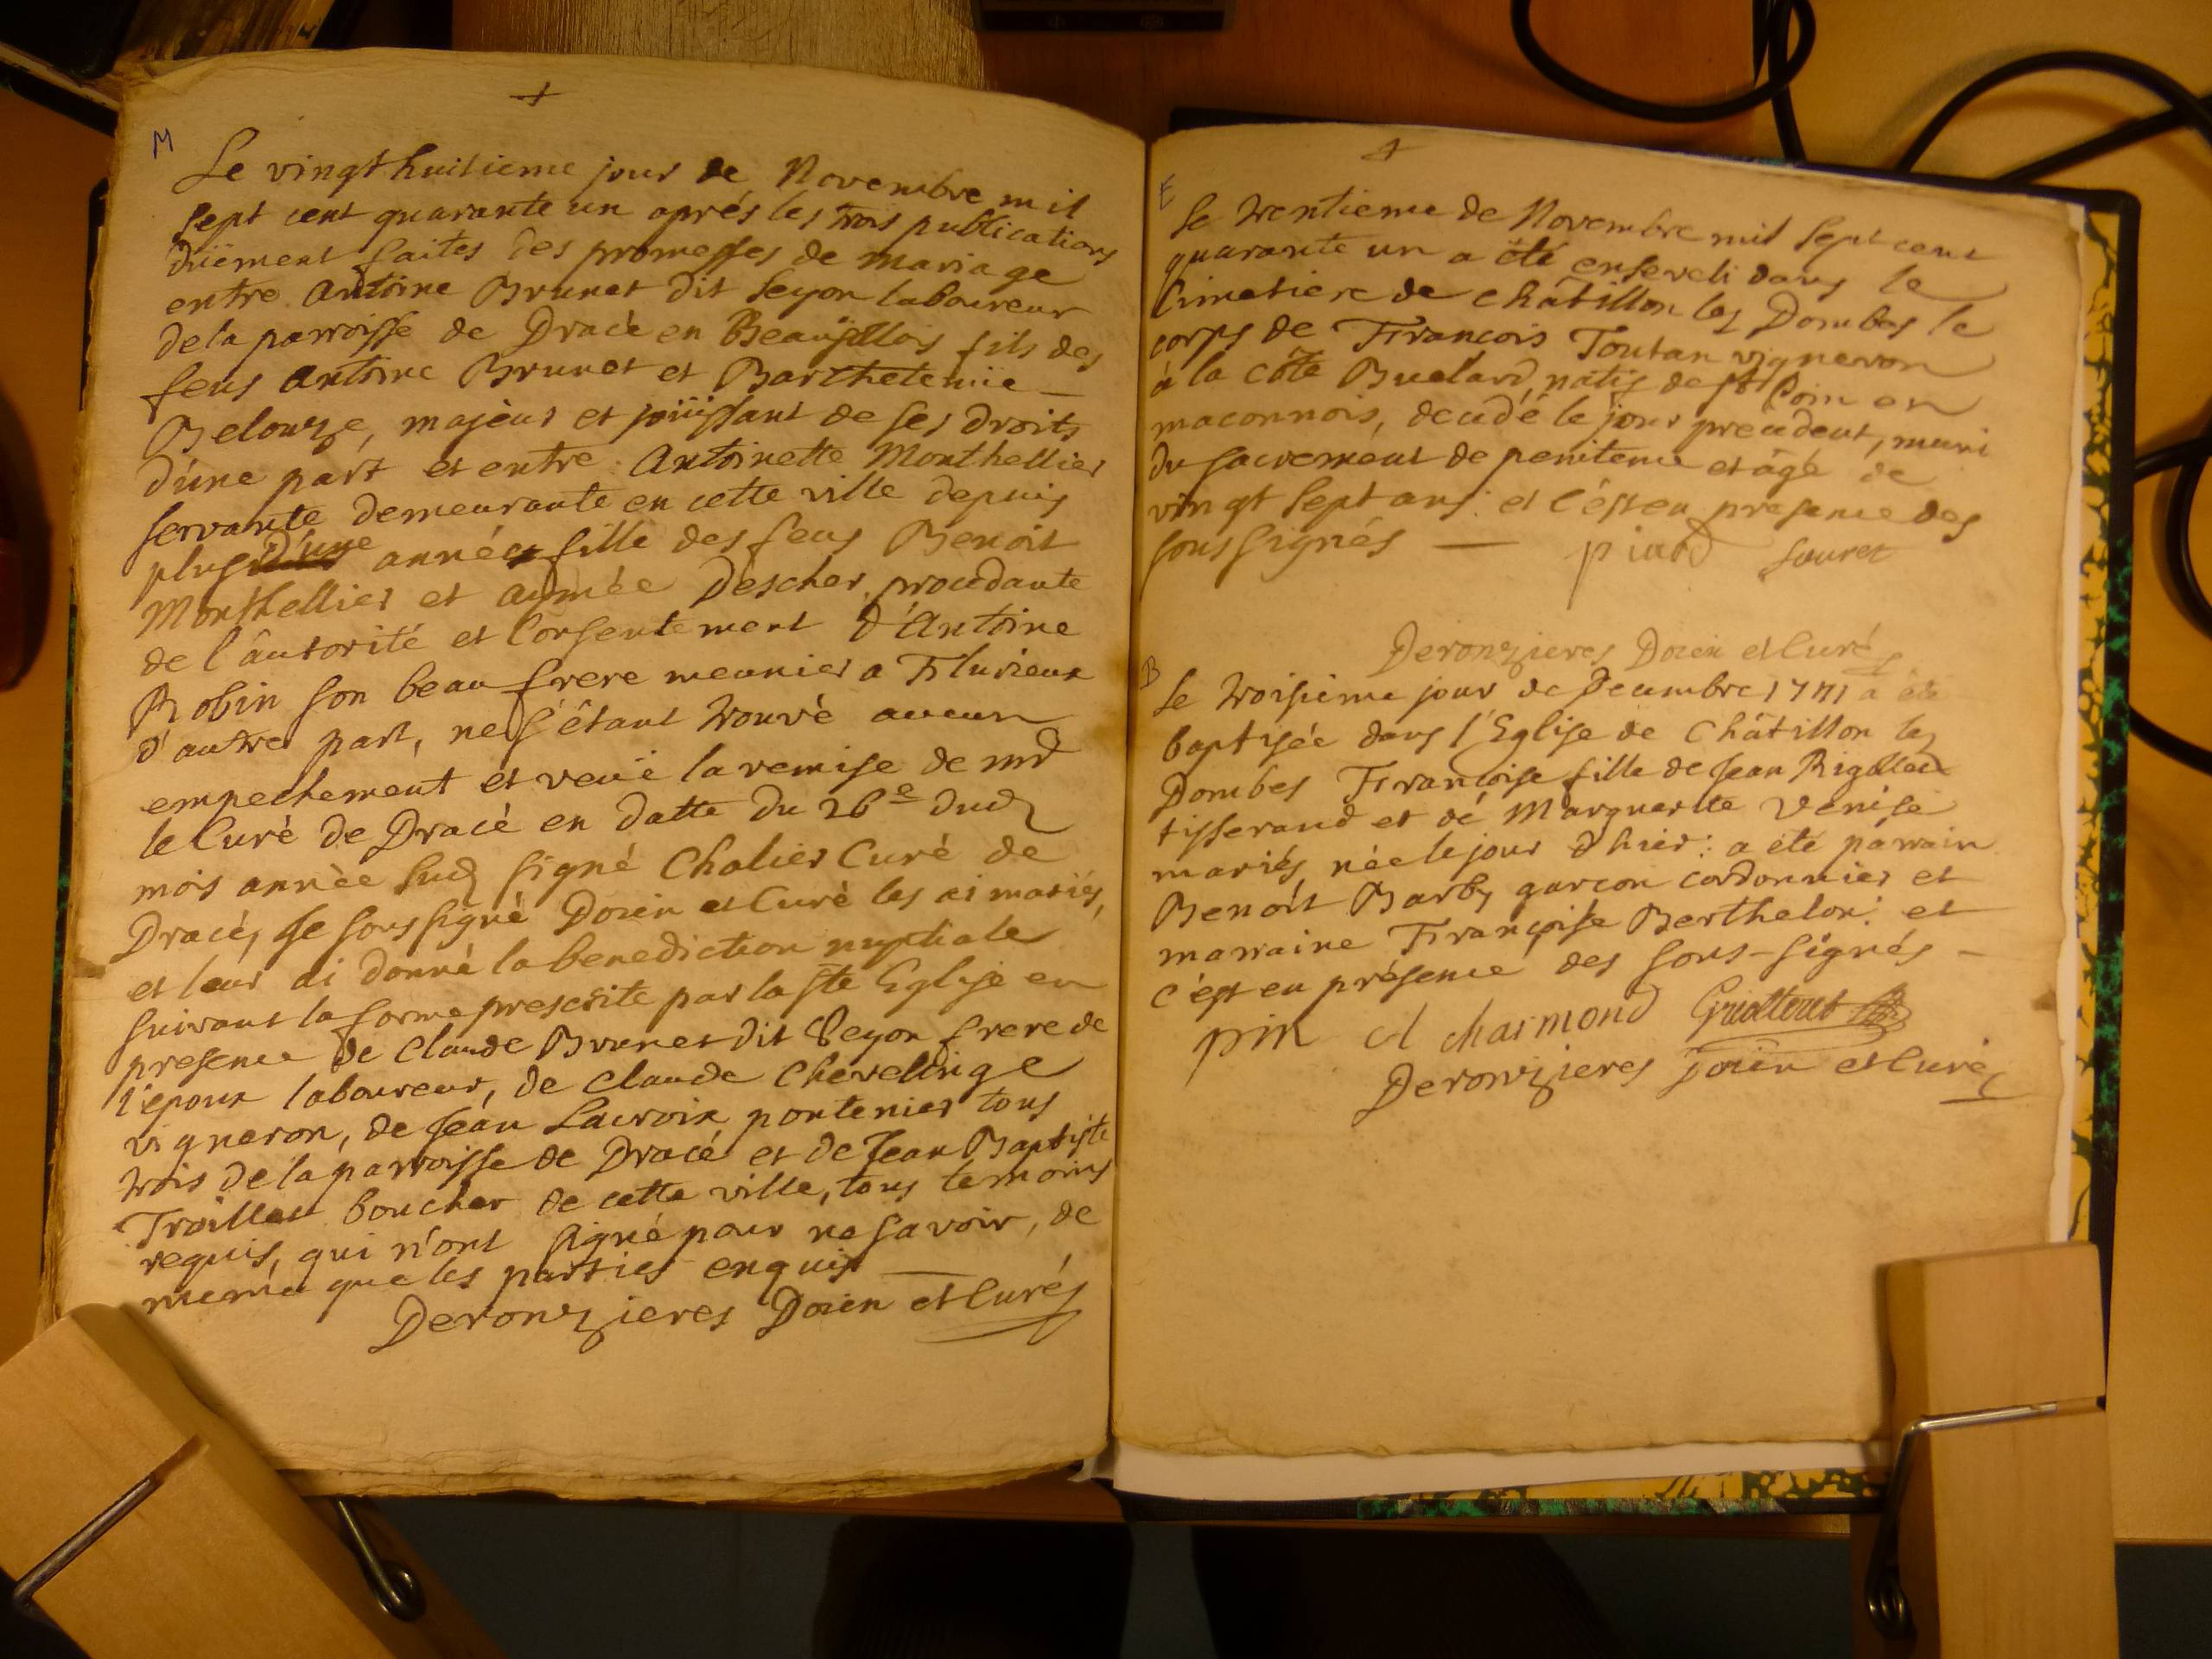 M
Le vingt huitieme jour de Novembre mil
sept cent quarante un aprés les trois publications
düement faites des promesses de mariage
entre Antoine Brunet dit Seyon laboureur
de la parroisse de Dracé en Beaujollois fils des
feus Antoine Brunet et Barthelemie
Belouze, majeur et joüissant de ses droits
d'une part et entre Antoinette Monthellier
servante demeurante en cette ville depuis
plus d'une année fille des feus Benoit
Monthellier et aymée Descher, procedante
de l'autorité et Consentement d'Antoine
Robin son beau frere meunier a Flurieux
d'autre part, ne s'étant trouvé aucun
empechement et veüe la remise de mr
le Curé de Dracé en datte du 26e dud
mois année sud signé Chalier Curé de
Dracé, Je soussigné Doïen et Curé les ai mariés,
et leur ai donné la benediction nuptiale
suivant la forme prescrite par la Ste Eglise en
presence de Claude Brunet dit Seyon frere de
l'epoux laboureur, de Claude Chevelinge
vigneron, de Jean Lacroix pontenier tous
trois de la parroisse de Dracé et de Jean Baptiste
Troillet boucher de cette ville, tous temoins
requis, qui n'ont signé pour ne savoir, de
meme que les parties enquis
Deronzieres Doïen et Curé
E
Le trentieme de Novembre mil sept cent
quarante un a été enseveli dans le
Cimetiere de Châtillon les Dombes le
corps de Francois Toutan vigneron
à la côte Buelard, natif de St Poin en
maconnois, decedé le jour precedent, muni
du sacrement de penitence et âgé de
vingt sept ans: et c'est en presence des
soussignés — piard Souret
Deronzieres Doïen et Curé
B
Le troisieme jour de Decembre 1741 a été
baptisée dans l'Eglise de Châtillon les
Dombes Francoise fille de Jean Rigollet
tisserand et de Marguerite Venise
mariés, née le jour d'hier: a été parrain
Benoît Barby garçon cordonnier et
marraine Françoise Berthelon: et
c'est en présence des sous-signés —
pin Charmond Guolteret
Deronzieres Doïen et Curé